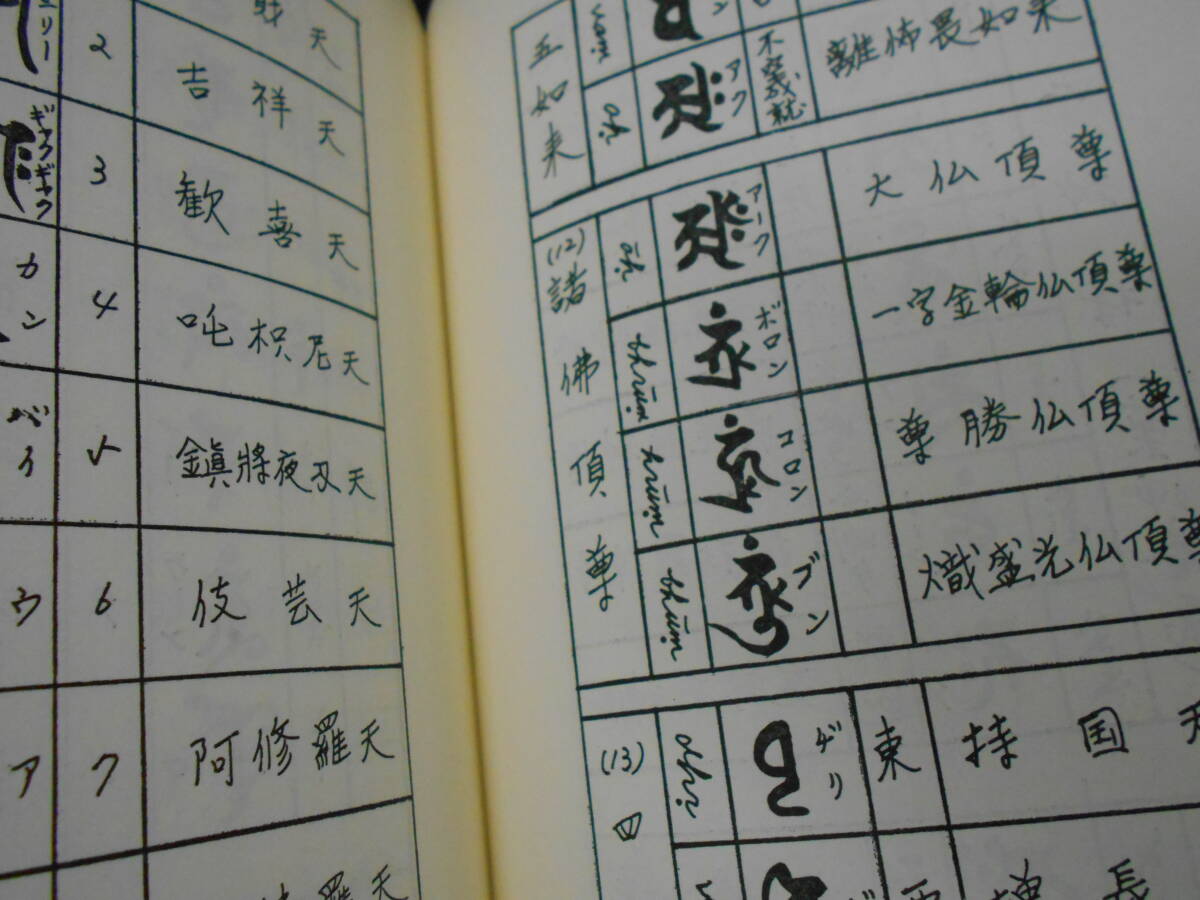 天
2
吉祥天
ギャクギャク
3
歓喜天
カン
4
吒枳尼天
バイ
5
鎭將夜叉天
ウ
6
伎芸天
ア
7
阿修羅天
羅天
五如来
vaṃ
aḥ
アク
不空成就
離怖畏如来
(12)
諸佛頂尊
āḥ
アーク
大仏頂尊
bhrūṃ
ボロン
一字金輪仏頂尊
hrūṃ
コロン
尊勝仏頂尊
bhūṃ
ブン
熾盛光仏頂尊
(13)
四
dhṛ
ヂリ
東
持国天
西
長